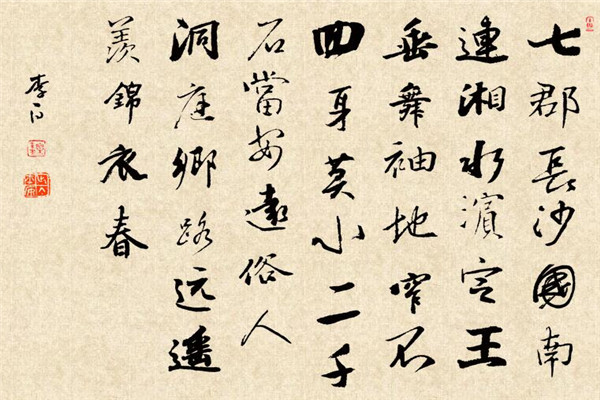 七郡長沙國南
連湘水濱定王
垂舞袖地窄不
回身莫小二千
石當安遠俗人
洞庭鄉路远遥
羨錦衣春
李白